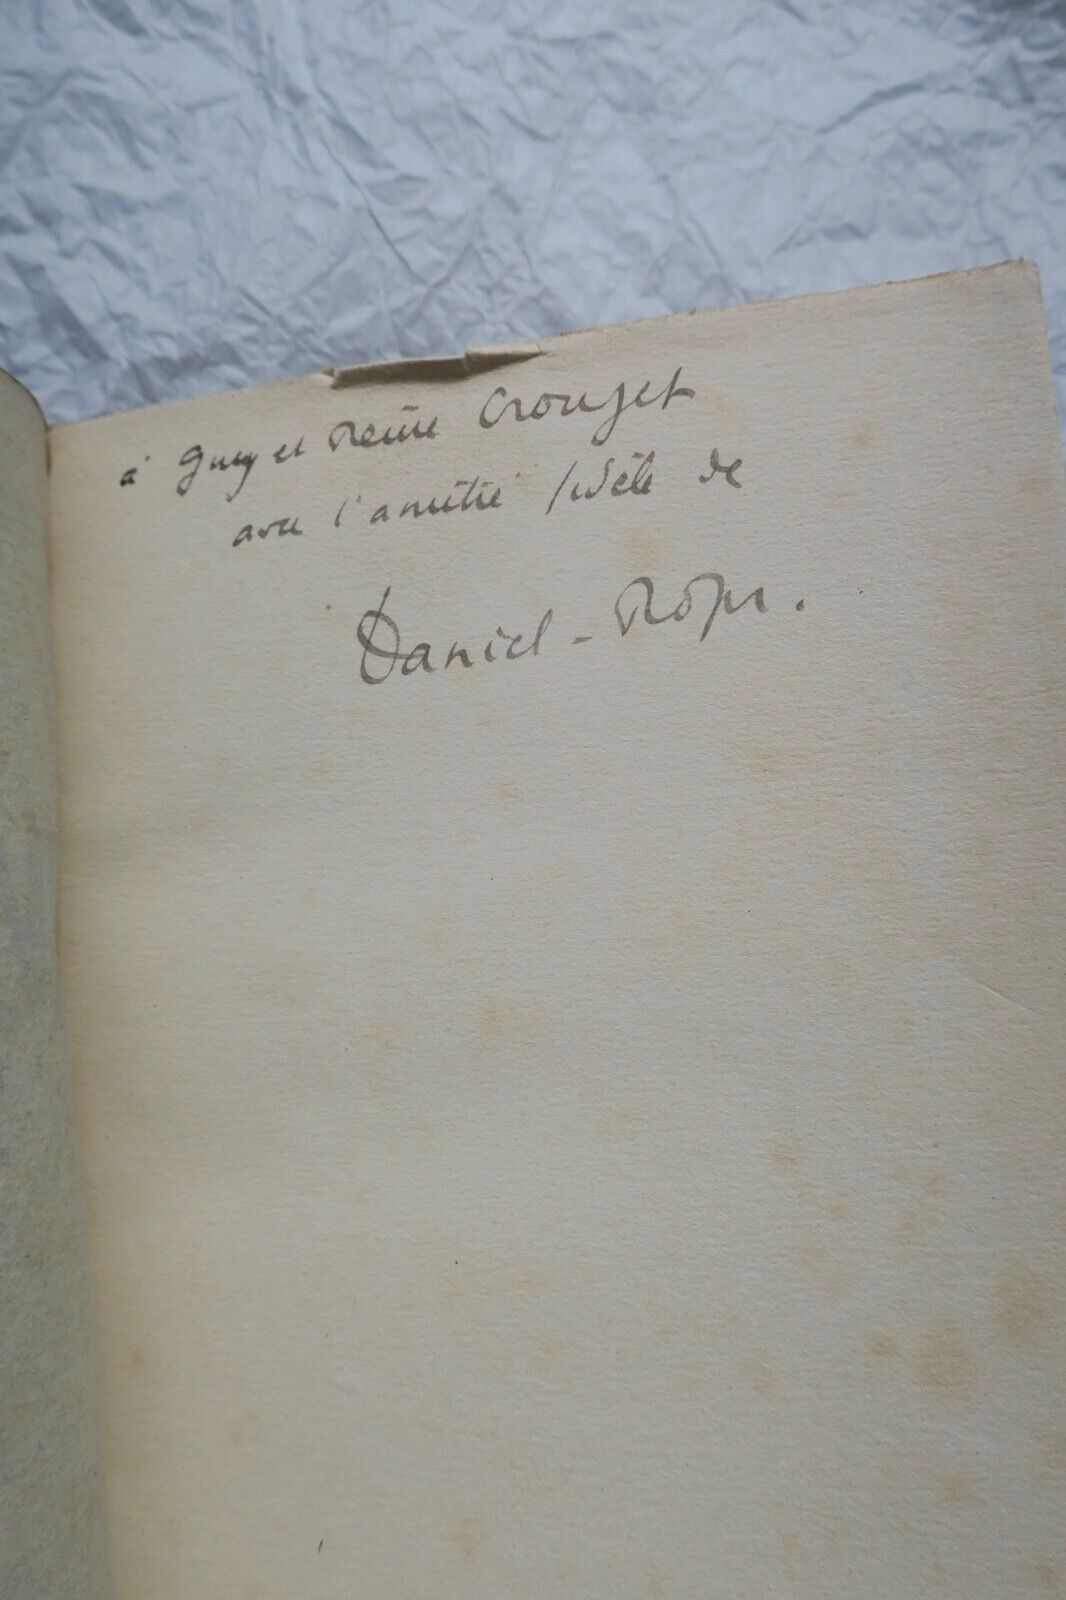 à Guy et Reine Crouzet
avec l'amitié fidèle de
Daniel-Rops.